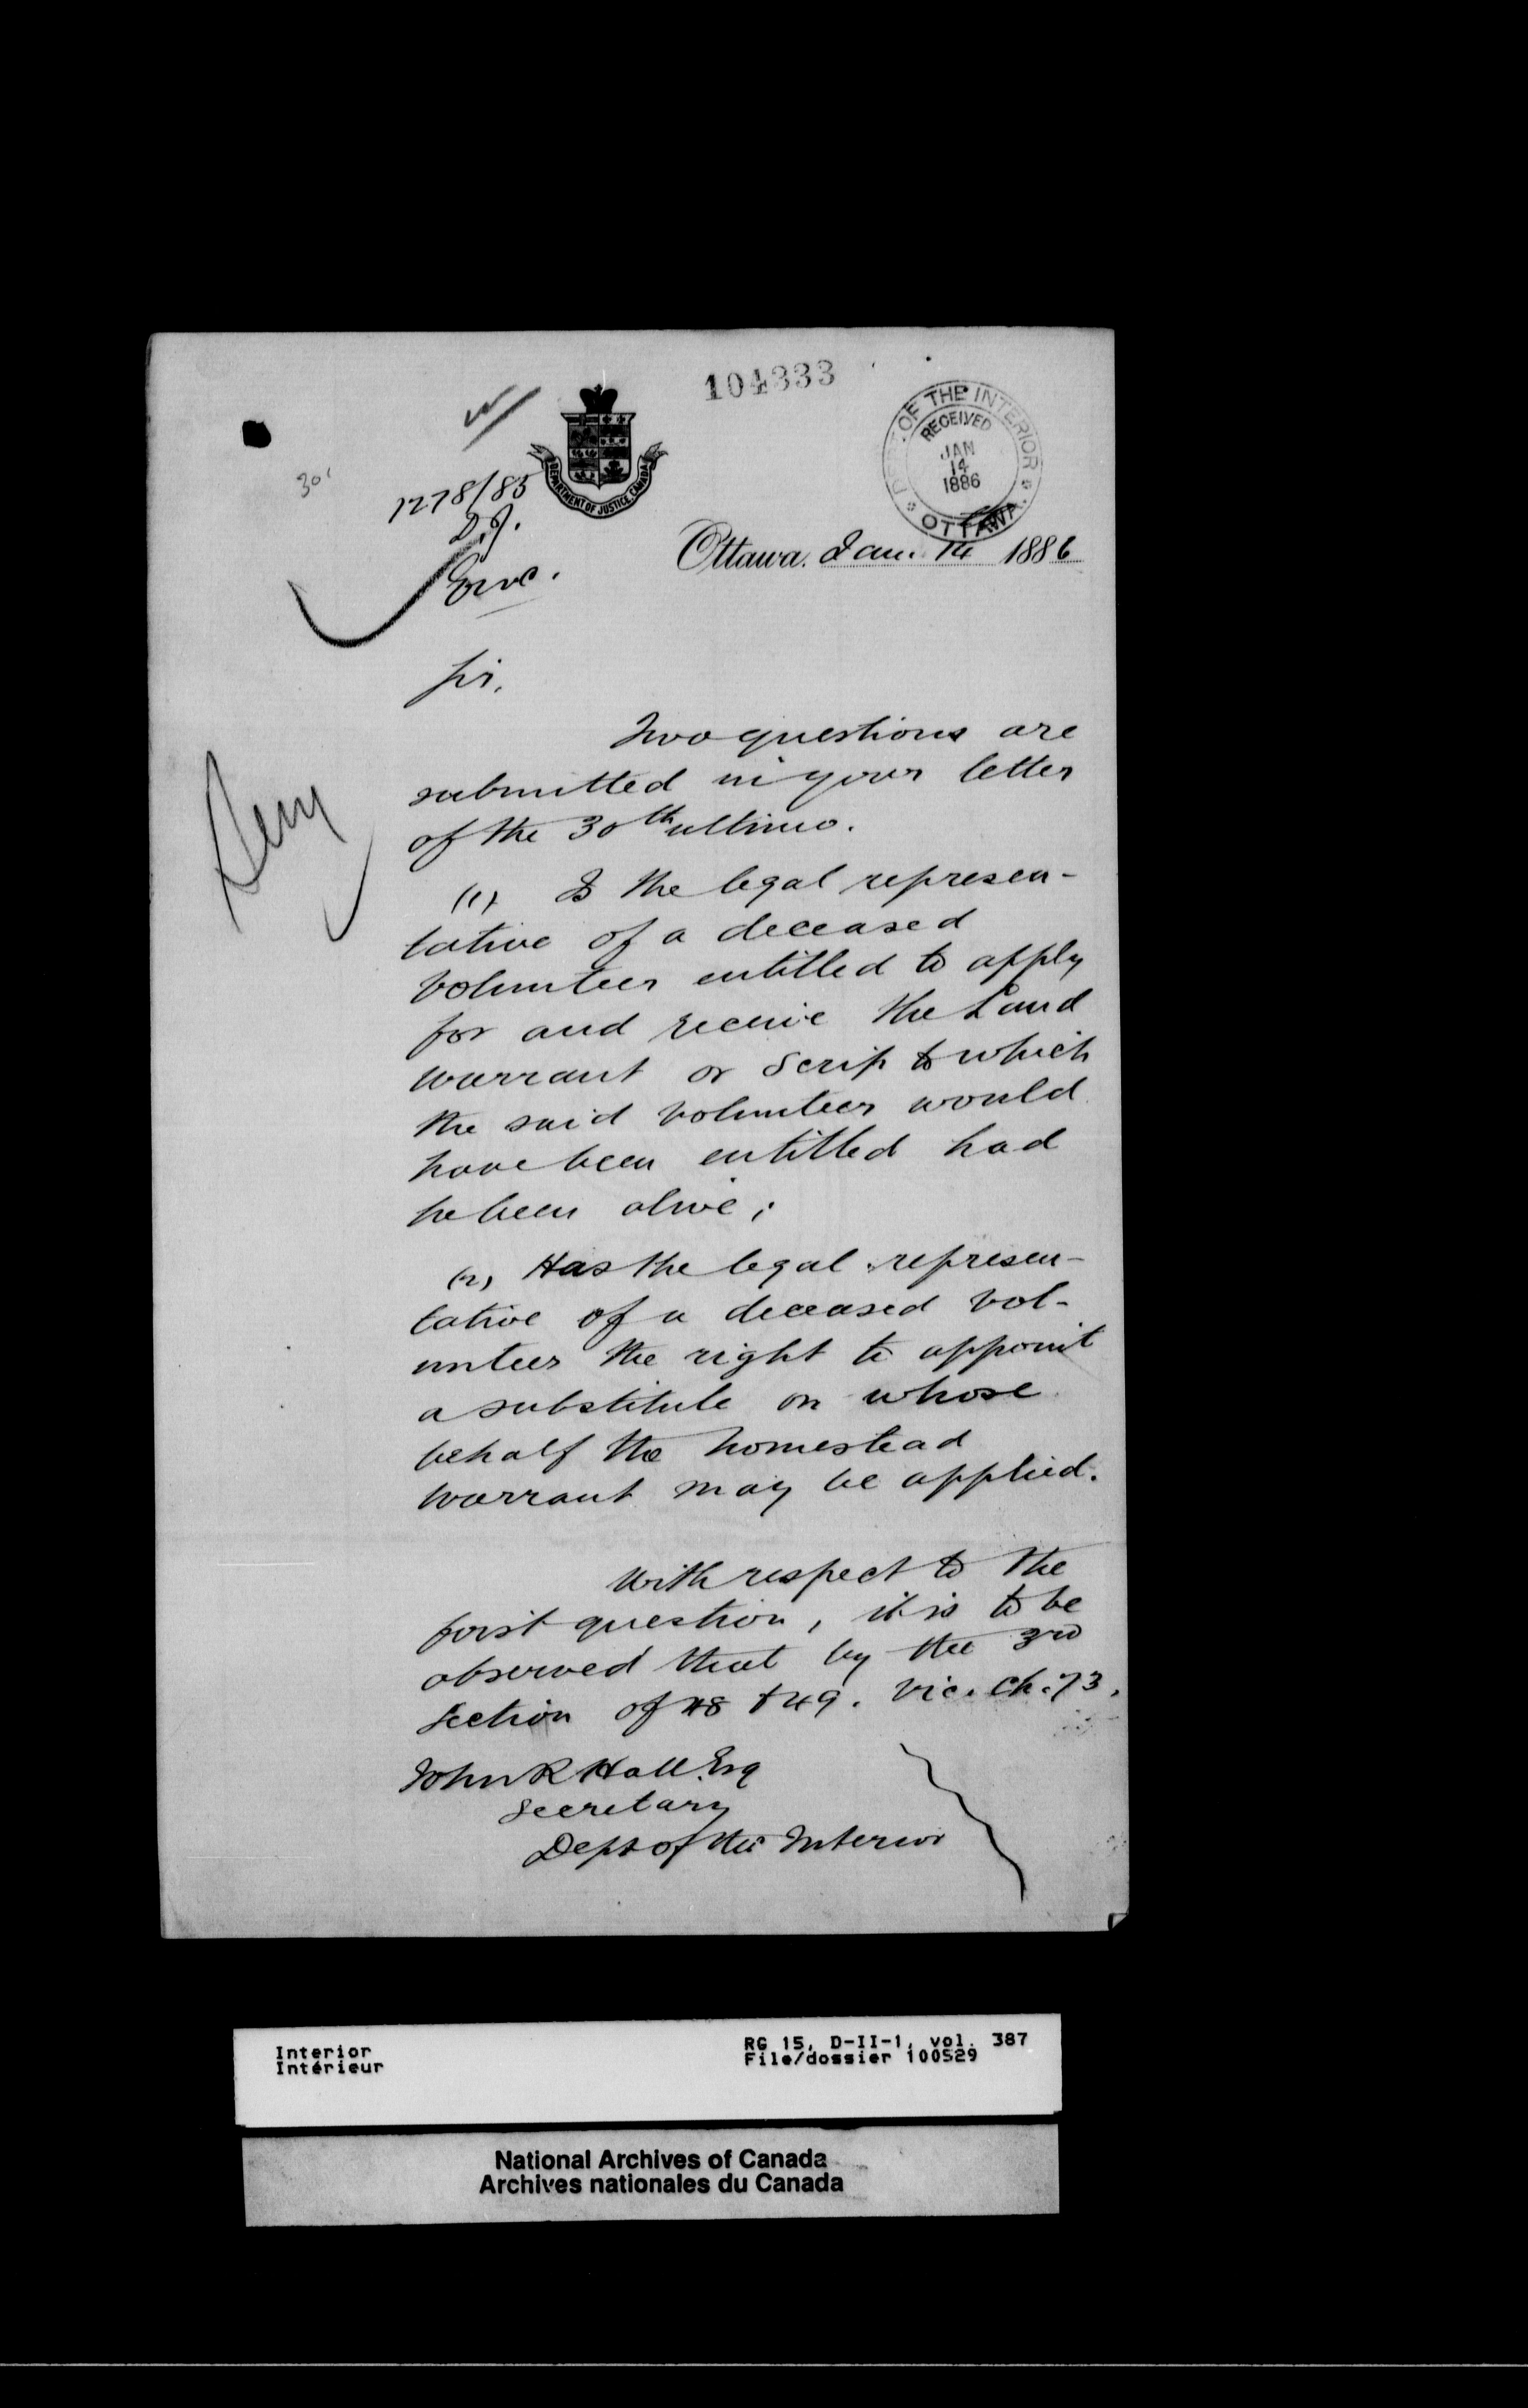 104333
DEPT. OF THE INTERIOR
RECEIVED
JAN
14
1886
OTTAWA
DEPARTMENT OF JUSTICE, CANADA
30
1278/85
D.J.
Enc.
Ottawa. Jan. 14 1886
Sir,
Two questions are
submitted in your letter
of the 30th ultimo.
(1) Is the legal represen-
tative of a deceased
volunteer entitled to apply
for and receive the Land
warrant or Scrip to which
the said volunteer would
have been entitled had
he been alive;
(2) Has the legal represen-
tative of a deceased vol-
unteer the right to appoint
a substitute on whose
behalf the homestead
warrant may be applied.
With respect to the
first question, it is to be
observed that by the 3rd
Section of 48 & 49. Vic. Ch. 73,
John R Hall. Esq
Secretary
Dept of the Interior
Interior
Intérieur
RG 15, D-II-1, vol. 387
File/dossier 100529
National Archives of Canada
Archives nationales du Canada